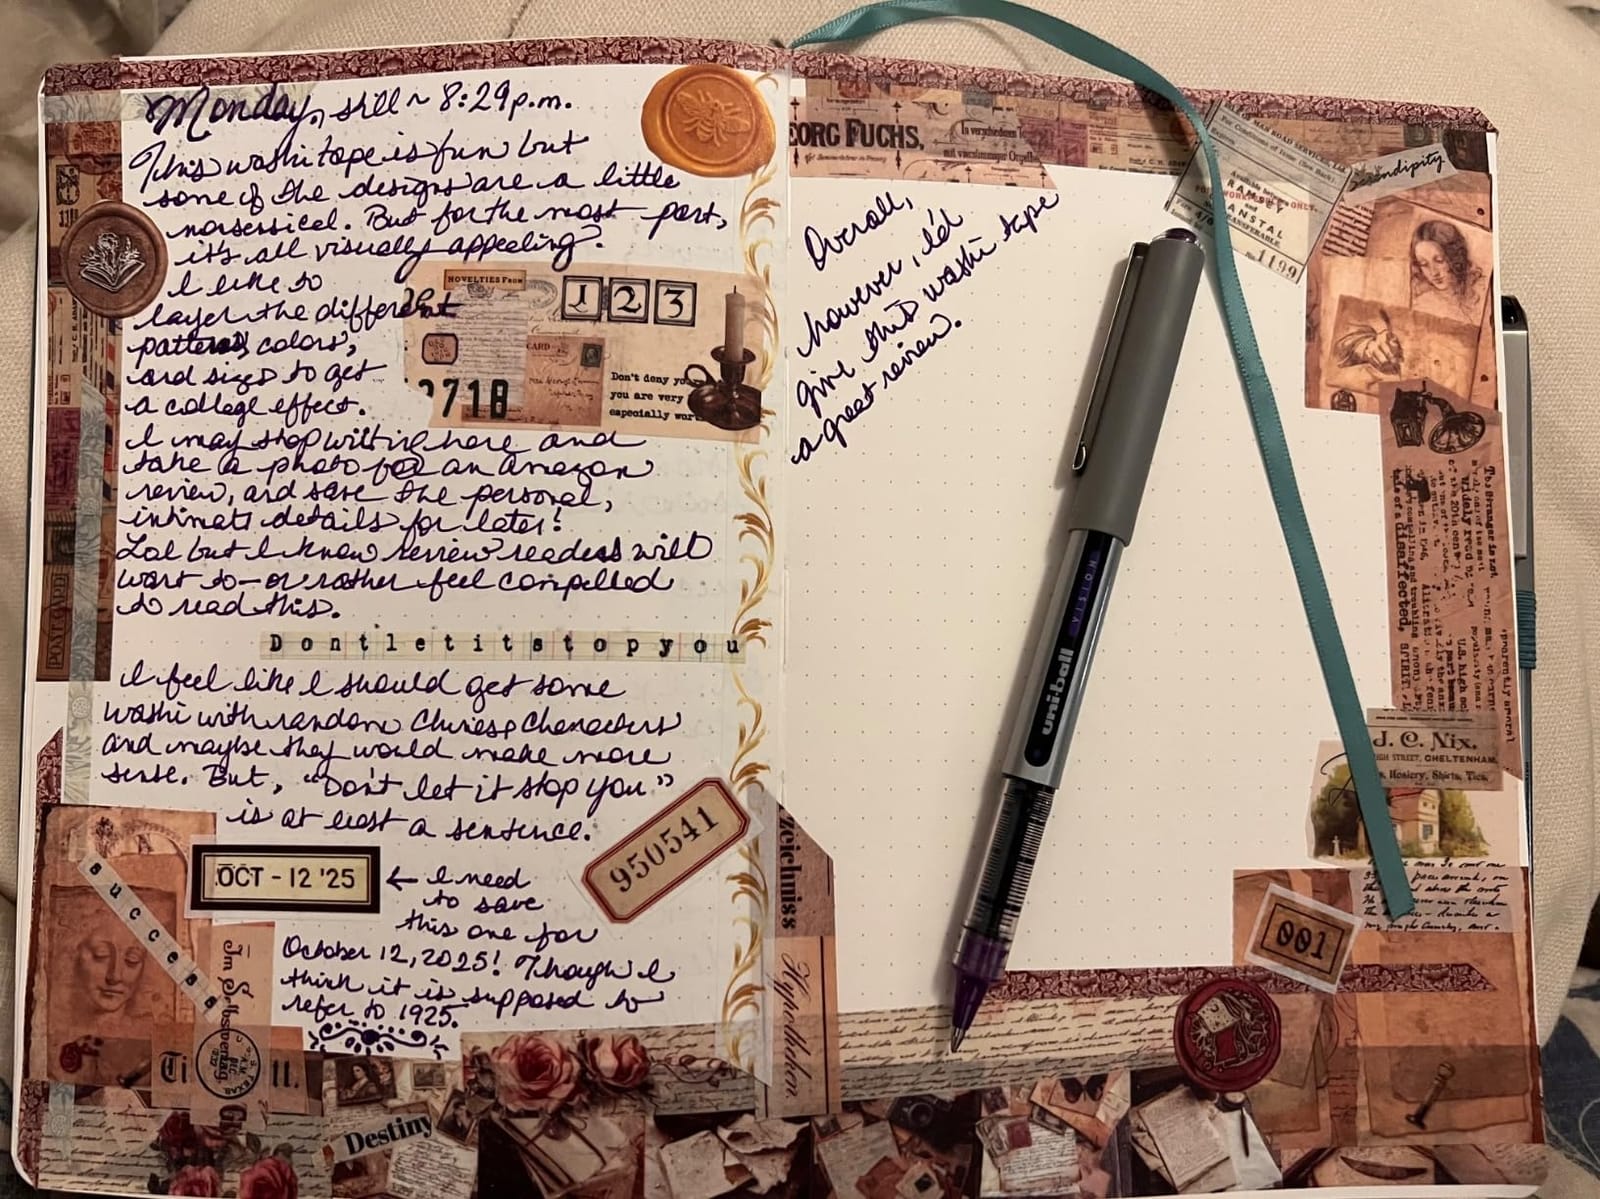 Monday, still ~ 8:29 p.m.
This washi tape is fun but
some of the designs are a little
nonsensical. But for the most part,
it's all visually appealing.
I like to
layer the different
patterns, colors,
and sizes to get
a collage effect.
I may stop writing here and
take a photo for an Amazon
review, and save the personal,
intimate details for later!
Lol but I know review readers will
want to—or rather feel compelled
to read this.
Dontletitstopyou
I feel like I should get some
washi with random Chinese Characters
and maybe they would make more
sense. But, "Don't let it stop you"
is at least a sentence.
OCT - 12 '25
← I need
to save
this one for
October 12, 2025! Though I
think it is supposed to
refer to 1925.
NOVELTIES FROM
1 2 3
CARD
3718
Don't deny yo
you are very
especially wor
950541
success
POSTCARD
Destiny
zeichniss
Hypotheken.
ORG FUCHS,
In verschiedenen
Overall,
however, I'd
give this washi tape
a great review.
RAMSEY
and
ANSTAL
No. 1199
Serendipity
The Stranger is not
widely read
of the 20th cen
disaffected,
SPIRIT.
U.S. high sc
J. C. Nix.
HIGH STREET, CHELTENHAM.
Hosiery, Shirts, Ties,
001
uni-ball
VISION